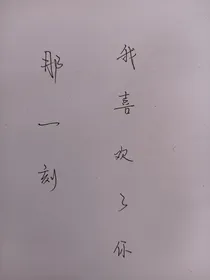 那一刻
我喜欢了你